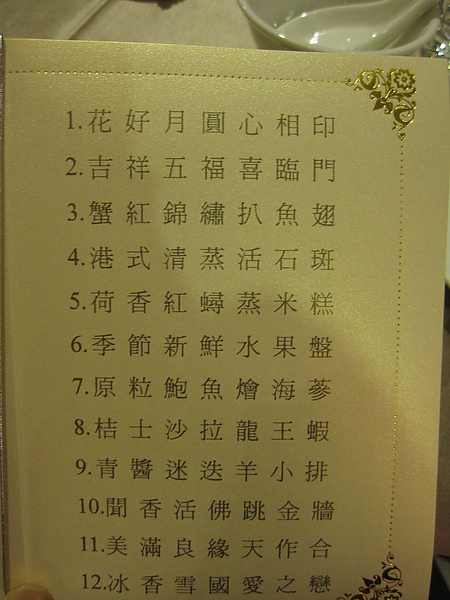 1.花好月圓心相印
2.吉祥五福喜臨門
3.蟹紅錦繡扒魚翅
4.港式清蒸活石斑
5.荷香紅蟳蒸米糕
6.季節新鮮水果盤
7.原粒鮑魚燴海蔘
8.桔士沙拉龍王蝦
9.青醬迷迭羊小排
10.聞香活佛跳金牆
11.美滿良緣天作合
12.冰香雪國愛之戀